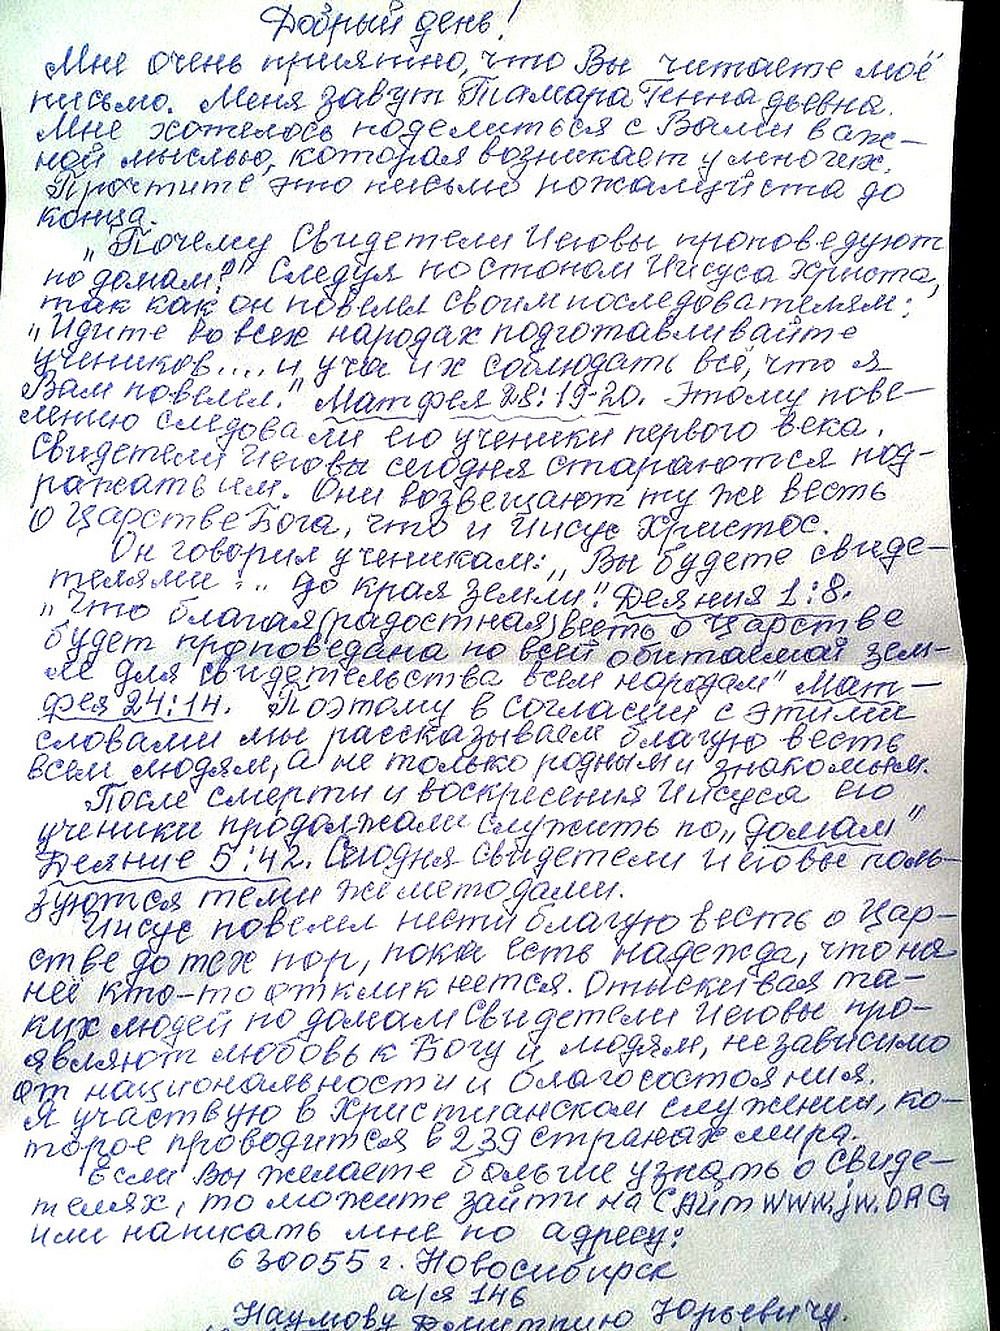 Добрый день!
Мне очень приятно, что Вы читаете моё
письмо. Меня зовут Тамара Геннадьевна.
Мне хотелось поделиться с Вами важ-
ной мыслью, которая возникает у многих.
Прочтите это письмо пожалуйста до
конца.
„Почему Свидетели Иеговы проповедуют
по домам?" Следуя по стопам Иисуса Христа,
так как он повелел своим последователям:
„Идите во всех народах подготавливайте
учеников.... и уча их соблюдать всё, что я
Вам повелел." Матфея 28:19-20. Этому пове-
лению следовали его ученики первого века.
Свидетели Иеговы сегодня стараются под-
ражать им. Они возвещают ту же весть
о Царстве Бога, что и Иисус Христос.
Он говорил ученикам: „Вы будете свиде-
телями ... до края земли". Деяния 1:8.
„Что благая (радостная) весть о Царстве
будет проповедана по всей обитаемой зем-
ле для свидетельства всем народам" Мат-
фея 24:14. Поэтому в согласии с этими
словами мы рассказываем благую весть
всем людям, а не только родным и знакомым.
После смерти и воскресения Иисуса его
ученики продолжали служить по „домам"
Деяние 5:42. Сегодня свидетели Иеговы поль-
зуются теми же методами.
Иисус повелел нести благую весть о Цар-
стве до тех пор, пока есть надежда, что на
неё кто-то откликнется. Отыскивая та-
ких людей по домам Свидетели Иеговы про-
являют любовь к Богу и людям, независимо
от национальности и благосостояния.
Я участвую в Христианском служении, ко-
торое проводится в 239 странах мира.
Если Вы желаете больше узнать о Свиде-
телях, то можите зайти на САйт www.jw.ORG
или написать мне по адресу:
630055 г. Новосибирск
а/я 146
Наумову Дмитрию Юрьевичу.